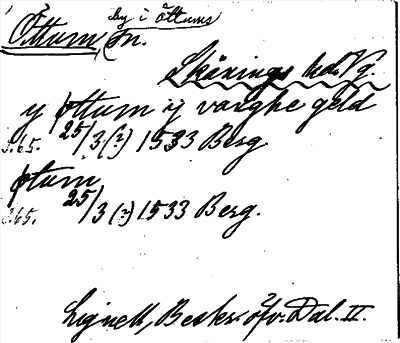 by i Öttums
Öttum, sn.
Skånings hd. Vg.
y øttum y vanghe geld
S. 65. 25/3 (?) 1533 Berg
øtum
S. 65. 25/3 (?) 1533 Berg.
Lignell, Beskr. öfv. Dal. II.